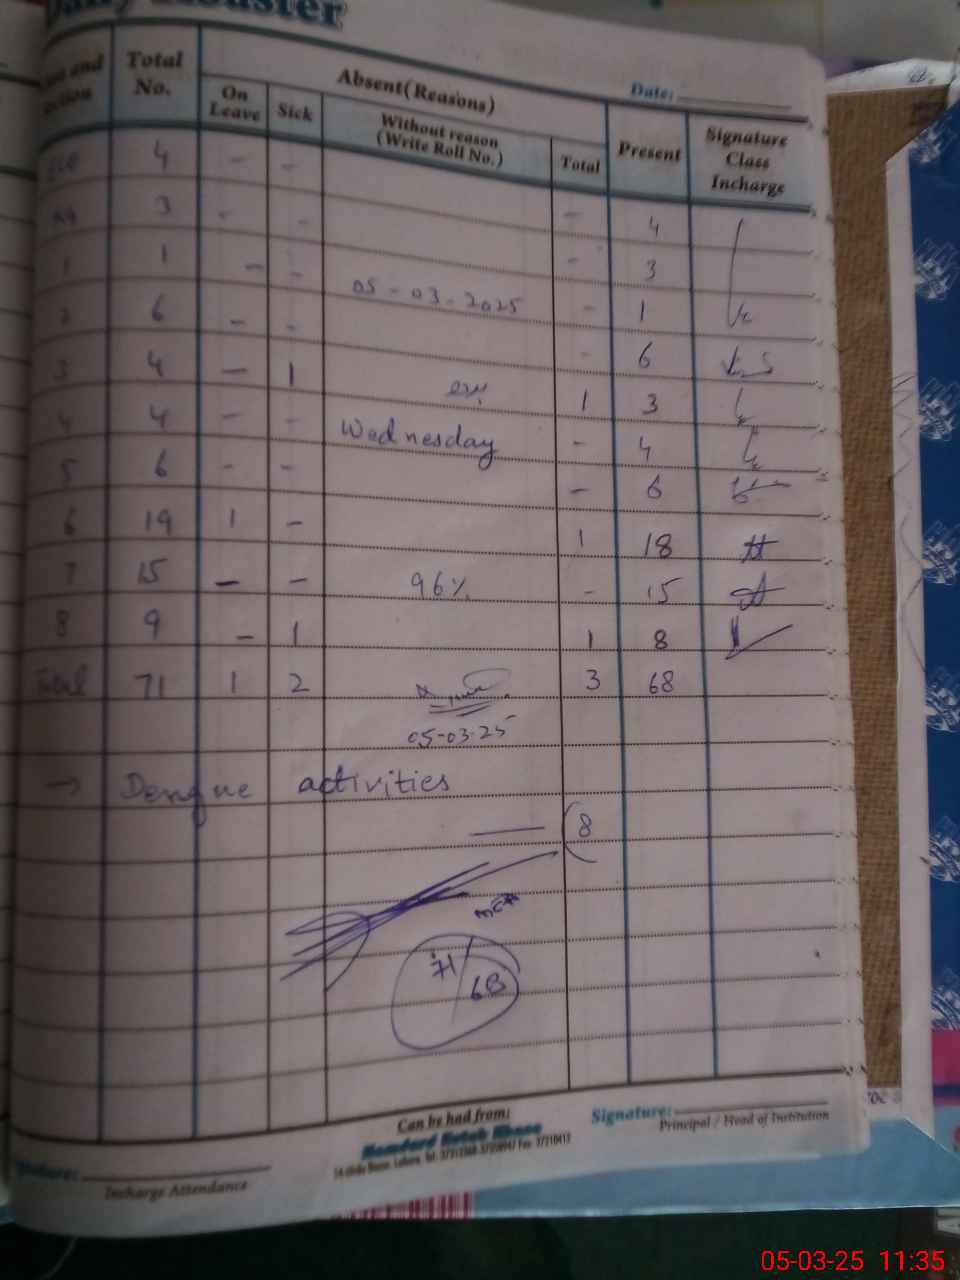 Daily Rouster
Date:
Class and Section Total No. Absent(Reasons) Present Signature Class Incharge
On Leave Sick Without reason (Write Roll No.) Total
ECE 4 - - - 4
3 - - - 3
1 1 - - 05-03-2025 - 1
2 6 - - - 6
3 4 - 1 1 3
4 4 - - Wednesday - 4
5 6 - - - 6
6 19 1 - 1 18
7 15 - - 96% - 15
8 9 - 1 1 8
Total 71 1 2 3 68
05-03-25
→ Dengue activities
8
71/68
Can be had from:
Hamdard Kutab Khana
Signature:
Principal / Head of Institution
Signature:
Incharge Attendance
05-03-25 11:35